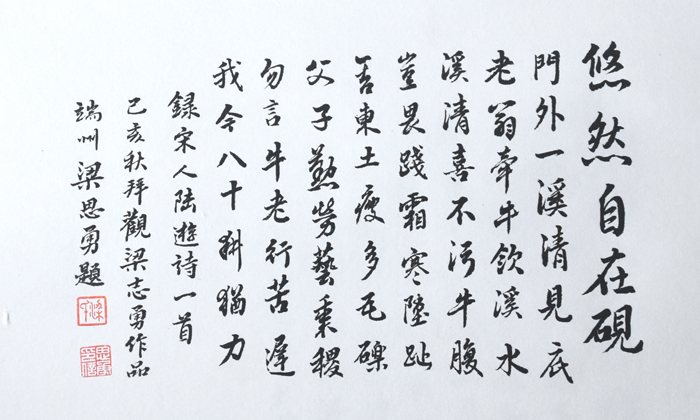 悠然自在硯
門外一溪清見底
老翁牽牛飲溪水
溪清喜不污牛腹
豈畏踐霜寒墮趾
舍東土瘦多瓦礫
父子勤勞藝黍稷
勿言牛老行苦遲
我今八十耕猶力
錄宋人陸遊詩一首
己亥秋拜觀梁志勇作品
端州梁思勇題